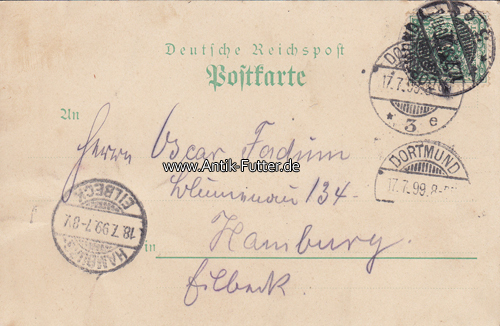 Deutsche Reichspost
Postkarte
An
Herrn Oscar Fadum
www.Antik-Futter.de
Blumenau 134.
in Hamburg.
Eilbeck.
DORTMUND
17.7.99.8-
* 3 e
DORTMUND
17.7.99.8-
EILBECK
18.7.99.7-8V.
HAMBURG